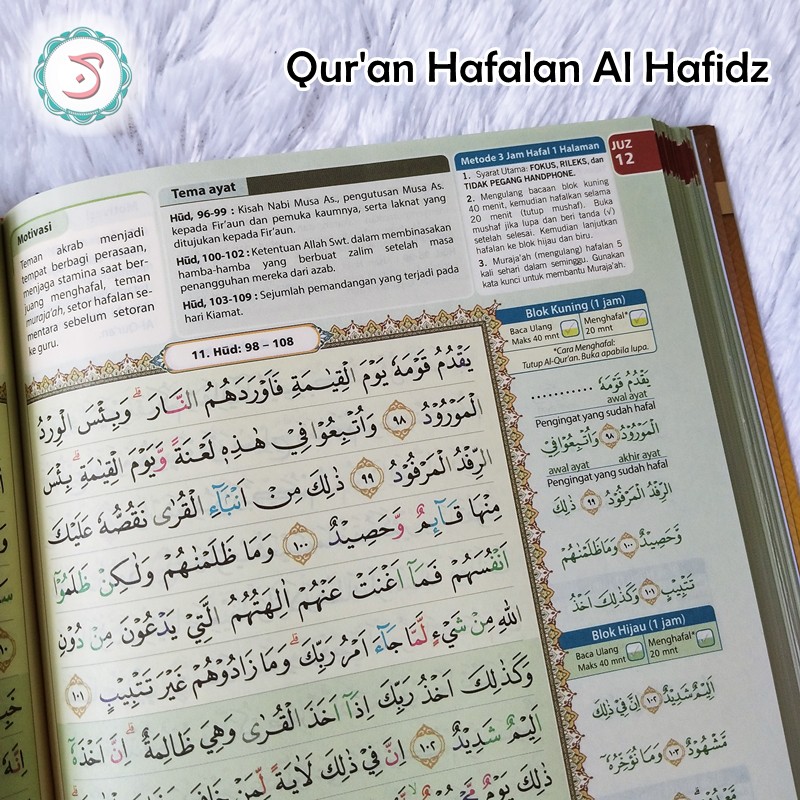 Qur'an Hafalan Al Hafidz
Motivasi
Teman akrab menjadi
tempat berbagi perasaan,
menjaga stamina saat ber-
juang menghafal, teman
muraja'ah, setor hafalan se-
mentara sebelum setoran
ke guru.
Tema ayat
Hūd, 96-99 : Kisah Nabi Musa As, pengutusan Musa As.
kepada Fir'aun dan pemuka kaumnya, serta laknat yang
ditujukan kepada Fir'aun.
Hūd, 100-102 : Ketentuan Allah Swt. dalam membinasakan
hamba-hamba yang berbuat zalim setelah masa
penangguhan mereka dari azab.
Hūd, 103-109 : Sejumlah pemandangan yang terjadi pada
hari Kiamat.
Metode 3 Jam Hafal 1 Halaman
1. Syarat Utama: FOKUS, RILEKS, dan
TIDAK PEGANG HANDPHONE.
2. Mengulang bacaan blok kuning
40 menit, kemudian hafalkan selama
20 menit (tutup mushaf). Buka
mushaf jika lupa dan beri tanda (√)
setelah selesai. Kemudian lanjutkan
hafalan ke blok hijau dan biru.
3. Muraja'ah (mengulang) hafalan 5
kali sehari dalam seminggu. Gunakan
kata kunci untuk membantu Muraja'ah.
JUZ
12
11. Hūd: 98 – 108
يَقْدُمُ قَوْمَهٗ يَوْمَ الْقِيٰمَةِ فَاَوْرَدَهُمُ النَّارَ ۗ وَبِئْسَ الْوِرْدُ
الْمَوْرُوْدُ ٩٨ وَاُتْبِعُوْا فِيْ هٰذِهٖ لَعْنَةً وَّيَوْمَ الْقِيٰمَةِ ۗ بِئْسَ
الرِّفْدُ الْمَرْفُوْدُ ٩٩ ذٰلِكَ مِنْ اَنْۢبَاۤءِ الْقُرٰى نَقُصُّهٗ عَلَيْكَ
مِنْهَا قَاۤىِٕمٌ وَّحَصِيْدٌ ١٠٠ وَمَا ظَلَمْنٰهُمْ وَلٰكِنْ ظَلَمُوْٓا
اَنْفُسَهُمْ فَمَآ اَغْنَتْ عَنْهُمْ اٰلِهَتُهُمُ الَّتِيْ يَدْعُوْنَ مِنْ دُوْنِ
اللّٰهِ مِنْ شَيْءٍ لَّمَّا جَاۤءَ اَمْرُ رَبِّكَ ۗ وَمَا زَادُوْهُمْ غَيْرَ تَتْبِيْبٍ ١٠١
وَكَذٰلِكَ اَخْذُ رَبِّكَ اِذَآ اَخَذَ الْقُرٰى وَهِيَ ظَالِمَةٌ ۗ اِنَّ اَخْذَهٗٓ
اَلِيْمٌ شَدِيْدٌ ١٠٢ اِنَّ فِيْ ذٰلِكَ لَاٰيَةً لِّمَنْ خَافَ
ذٰلِكَ يَوْمٌ
Blok Kuning (1 jam)
Baca Ulang
Maks 40 mnt
Menghafal*
20 mnt
*Cara Menghafal:
Tutup Al-Qur'an. Buka apabila lupa.
يَقْدُمُ قَوْمَهٗ ............
awal ayat
Pengingat yang sudah hafal
الْمَوْرُوْدُ ٩٨ وَاُتْبِعُوْا فِيْ
awal ayat akhir ayat
Pengingat yang sudah hafal
الرِّفْدُ الْمَرْفُوْدُ ٩٩ ذٰلِكَ
وَّحَصِيْدٌ ١٠٠ وَمَا ظَلَمْنٰهُمْ
تَتْبِيْبٍ ١٠١ وَكَذٰلِكَ اَخْذُ
Blok Hijau (1 jam)
Baca Ulang
Maks 40 mnt
Menghafal*
20 mnt
اَلِيْمٌ شَدِيْدٌ ١٠٢ اِنَّ فِيْ ذٰلِكَ
مَّشْهُوْدٌ ١٠٣ وَمَا نُؤَخِّرُهٗٓ